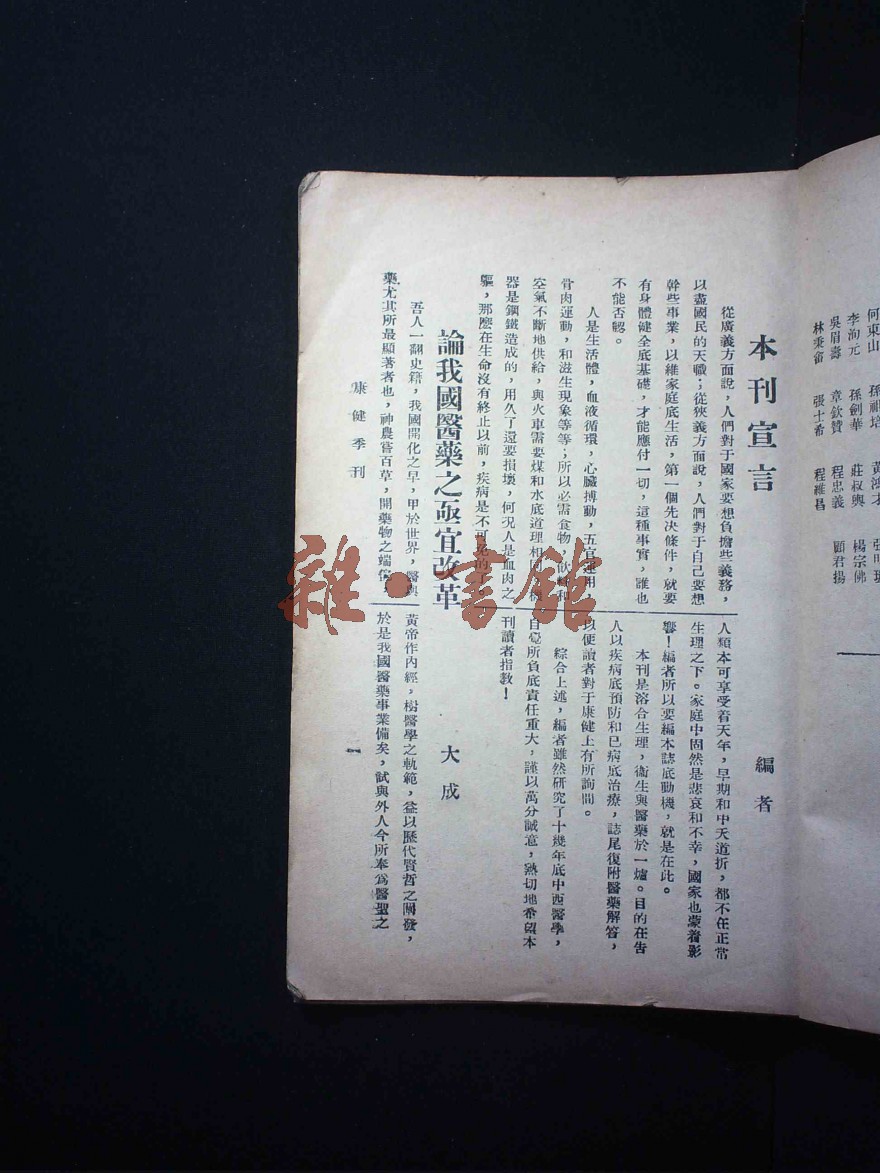 何東山　孫祖培　黃鴻才
李洵元　孫劍華　莊叔輿　楊宗佛
吳眉壽　章欽贊　程忠義　顧君揚
林秉奮　張士希　程維昌
本刊宣言　編者
從廣義方面說，人們對于國家要想負擔些義務，
以盡國民的天職；從狹義方面說，人們對于自己要想
幹些事業，以維家庭底生活，第一個先决條件，就要
有身體健全底基礎，才能應付一切，這種事實，誰也
不能否認。
人是生活體，血液循環，心臟搏動，五官運用，
骨肉運動，和滋生現象等等；所以必需食物，飲料和
空氣不斷地供給，與火車需要煤和水底道理相同，機
器是鋼鐵造成的，用久了還要損壞，何况人是血肉之
軀，那麽在生命沒有終止以前，疾病是不可免的了。
人類本可享受着天年，早期和中夭道折，都不在正常
生理之下。家庭中固然是悲哀和不幸，國家也蒙着影
響！編者所以要編本誌底動機，就是在此。
本刊是溶合生理，衞生與醫藥於一爐。目的在告
人以疾病底預防和已病底治療，誌尾復附醫藥解答，
以便讀者對于康健上有所詢問。
綜合上述，編者雖然研究了十幾年底中西醫學，
自覺所負底責任重大，謹以萬分誠意，熱切地希望本
刊讀者指教！
論我國醫藥之亟宜改革　大成
吾人一翻史籍，我國開化之早，甲於世界，醫與
藥尤其所最顯著者也，神農嘗百草，開藥物之端倪，
黃帝作內經，樹醫學之軌範，益以歷代賢哲之闡發，
於是我國醫藥事業備矣，試與外人今所奉爲醫聖之
康健季刊　一
雜·書館